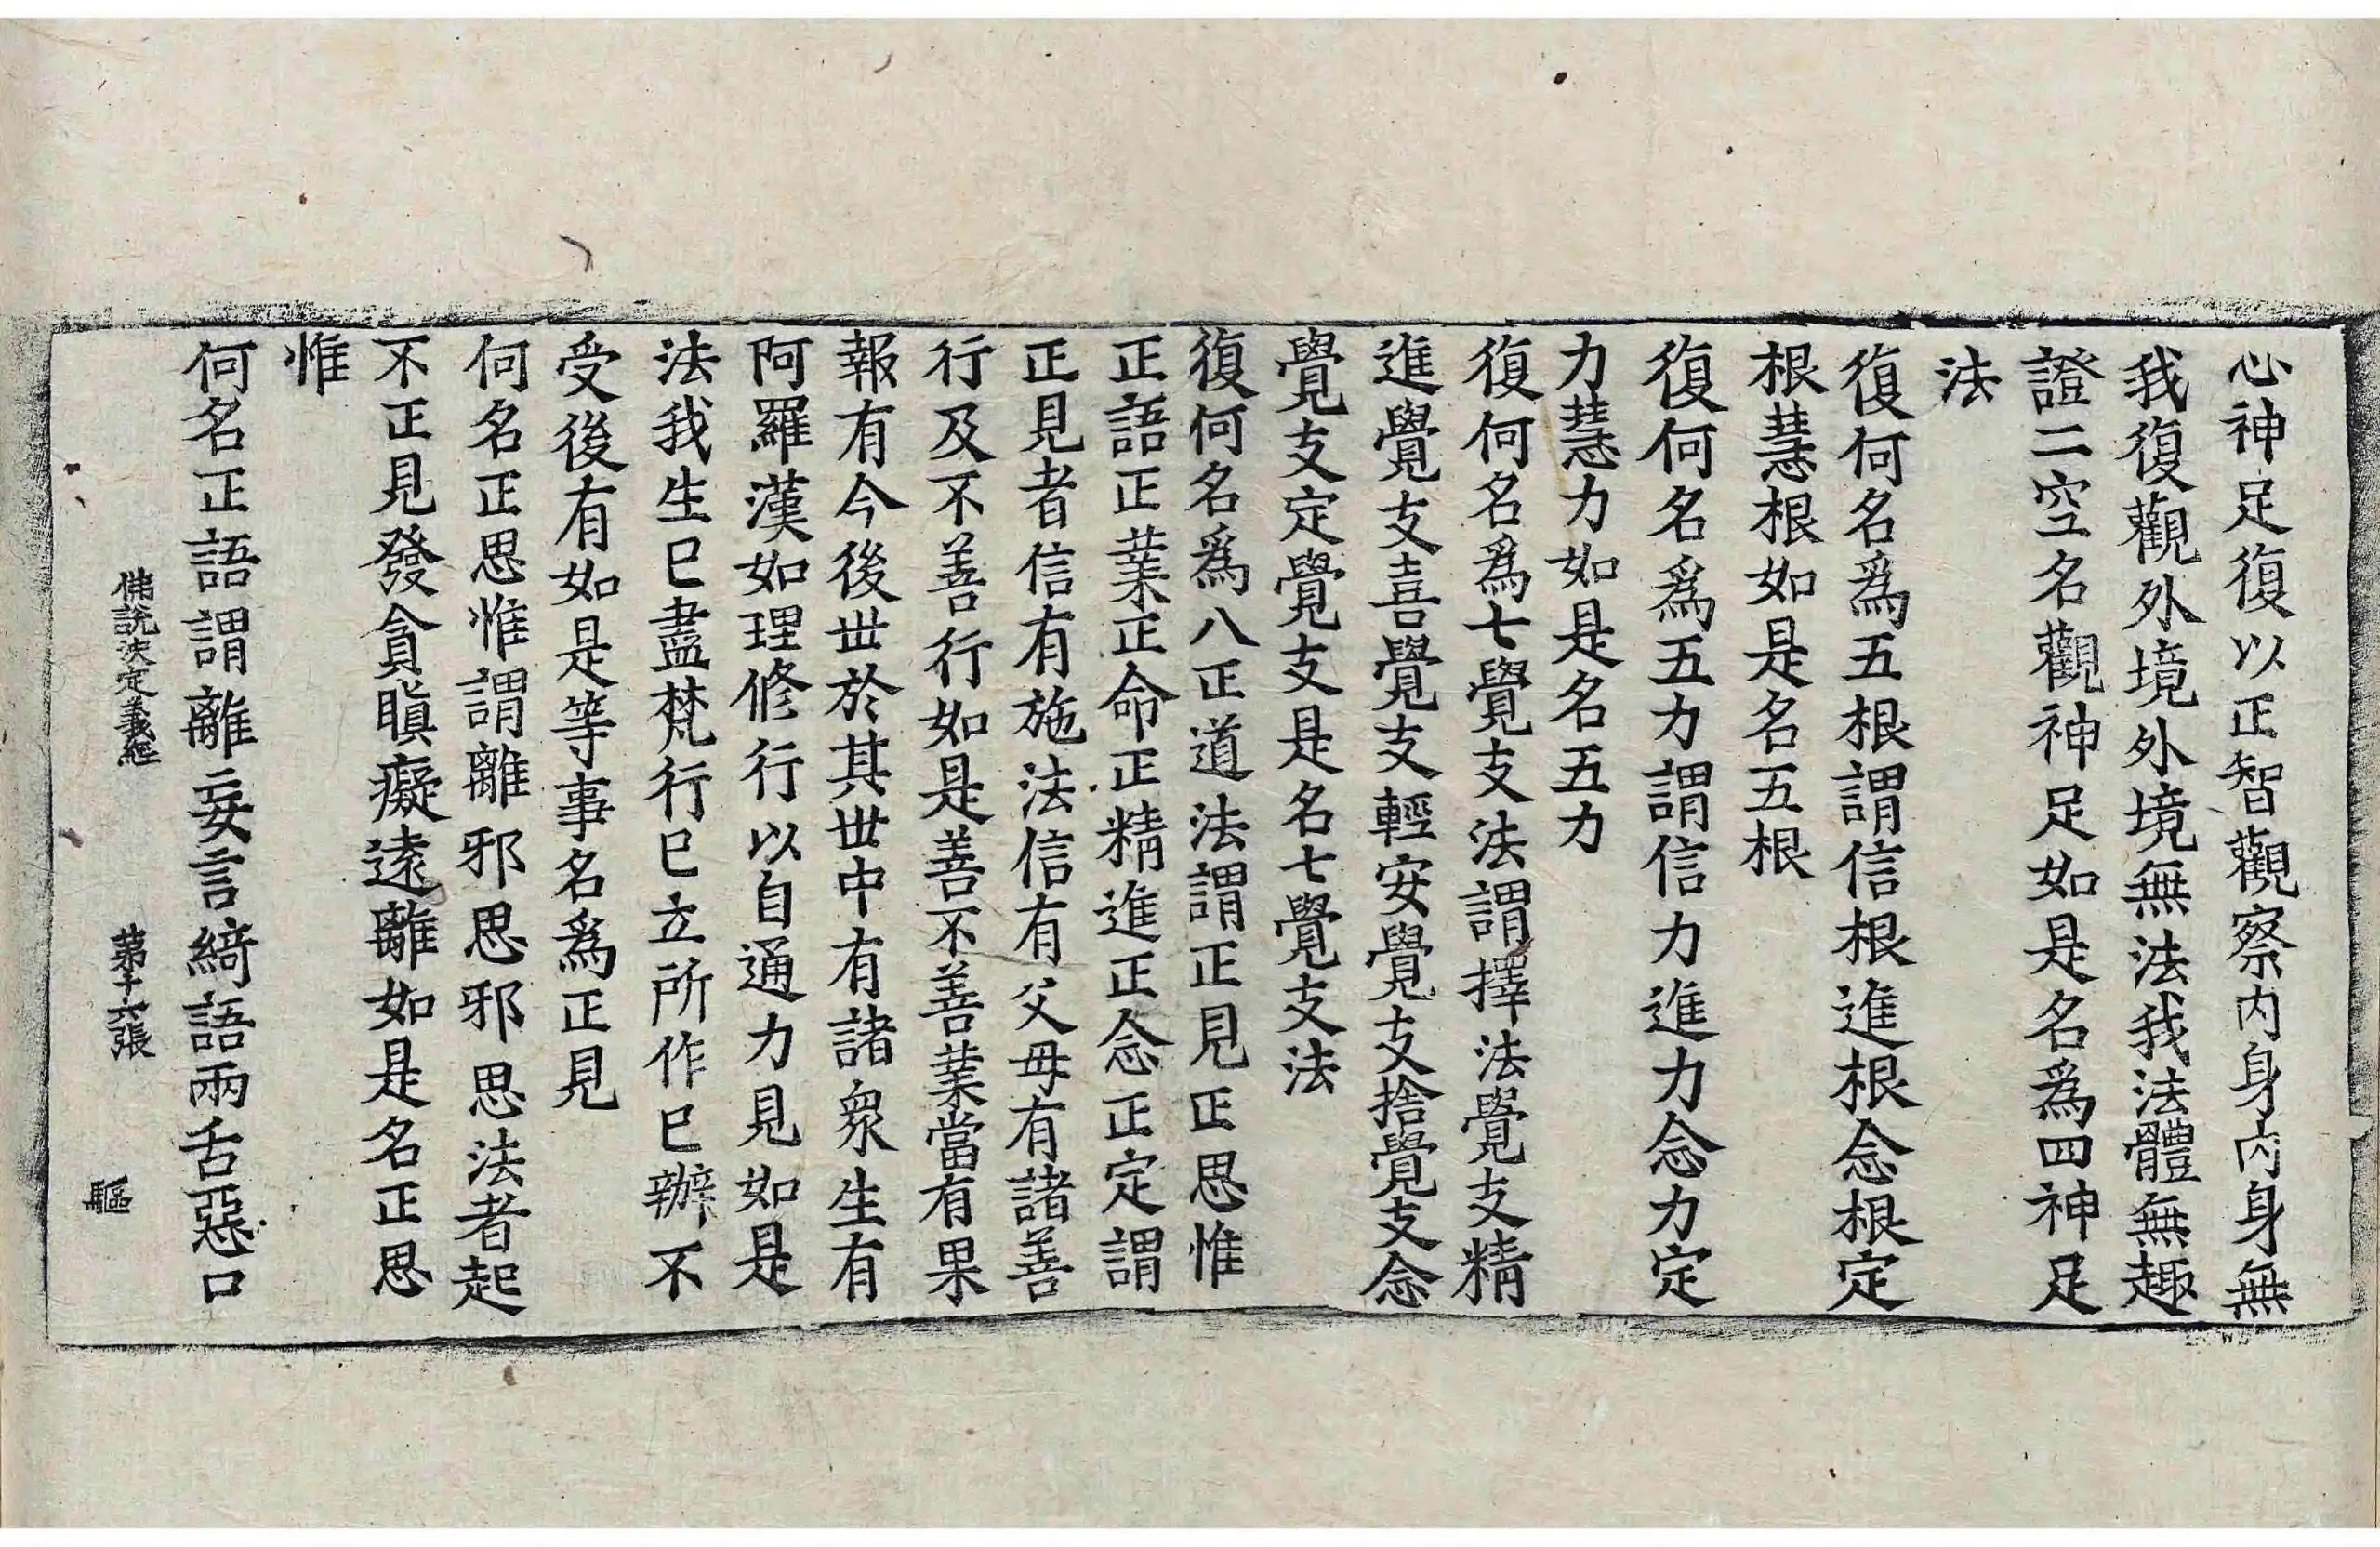 心神足復以正智觀察内身内身無
我復觀外境外境無法我法體無趣
證二空名觀神足如是名爲四神足
法
復何名爲五根謂信根進根念根定
根慧根如是名五根
復何名爲五力謂信力進力念力定
力慧力如是名五力
復何名爲七覺支法謂擇法覺支精
進覺支喜覺支輕安覺支捨覺支念
覺支定覺支是名七覺支法
復何名爲八正道法謂正見正思惟
正語正業正命正精進正念正定謂
正見者信有施法信有父母有諸善
行及不善行如是善不善業當有果
報有今後世於其世中有諸衆生有
阿羅漢如理修行以自通力見如是
法我生已盡梵行已立所作已辦不
受後有如是等事名爲正見
何名正思惟謂離邪思邪思法者起
不正見發貪瞋癡遠離如是名正思
惟
何名正語謂離妄言綺語兩舌惡口
佛説決定義經 第十六張 驅